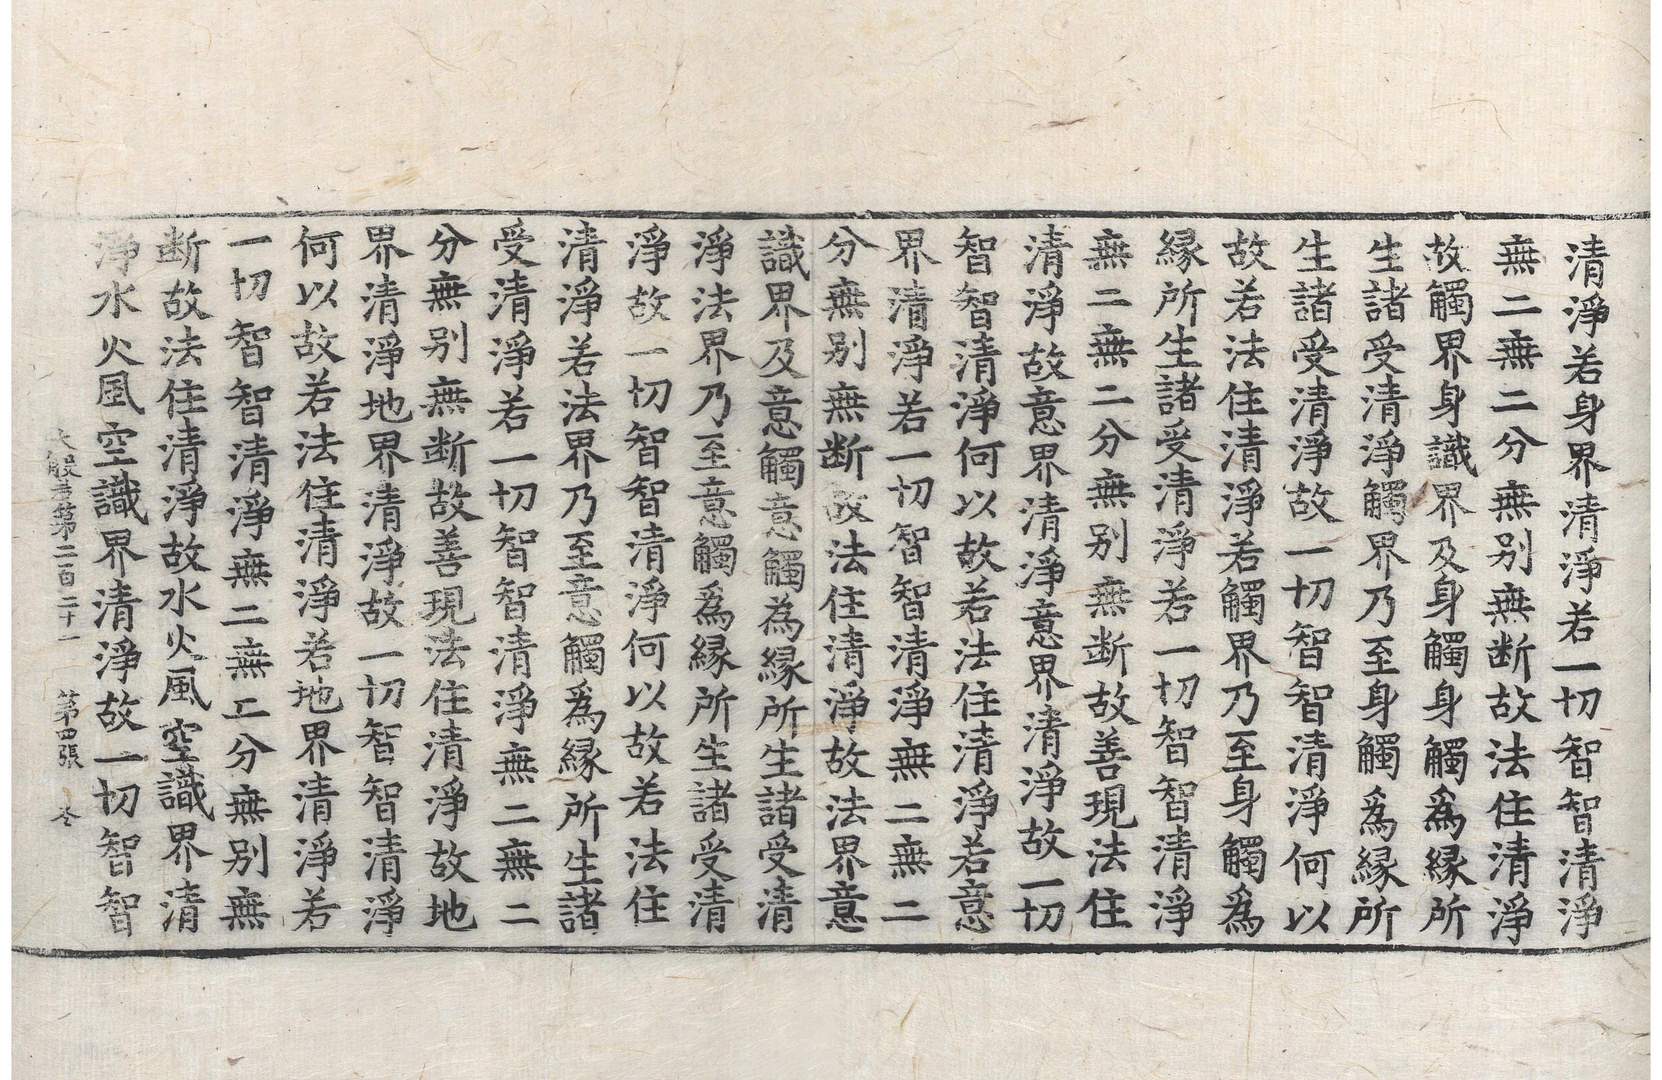 清淨若身界清淨若一切智智清淨
無二無二分無别無断故法住清淨
故觸界身識界及身觸身觸爲縁所
生諸受清淨觸界乃至身觸爲縁所
生諸受清淨故一切智智清淨何以
故若法住清淨若觸界乃至身觸爲
縁所生諸受清淨若一切智智清淨
無二無二分無别無断故善現法住
清淨故意界清淨意界清淨故一切
智智清淨何以故若法住清淨若意
界清淨若一切智智清淨無二無二
分無别無断故法住清淨故法界意
識界及意觸意觸為縁所生諸受清
淨法界乃至意觸爲縁所生諸受清
淨故一切智智清淨何以故若法住
清淨若法界乃至意觸爲縁所生諸
受清淨若一切智智清淨無二無二
分無别無断故善現法住清淨故地
界清淨地界清淨故一切智智清淨
何以故若法住清淨若地界清淨若
一切智智清淨無二無二分無别無
断故法住清淨故水火風空識界清
淨水火風空識界清淨故一切智智
大般若第二百二十一 第四張